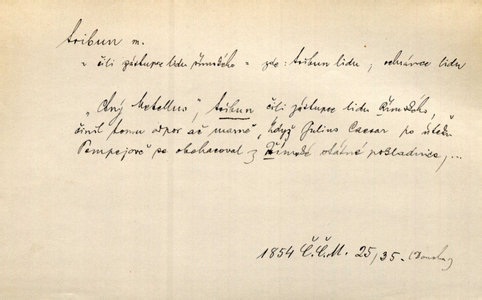 tribun m.
„ čili zástupce lidu římského “ zde: tribun lidu, ochránce lidu
„ Metellus“, tribun čili zástupce lidu Římského,
činil tomu odpor ač marně, když Julius Caesar po útěku
Pompejově se obohacoval z Římské státní pokladnice,...
1854 Č.Č.M. 25/35.